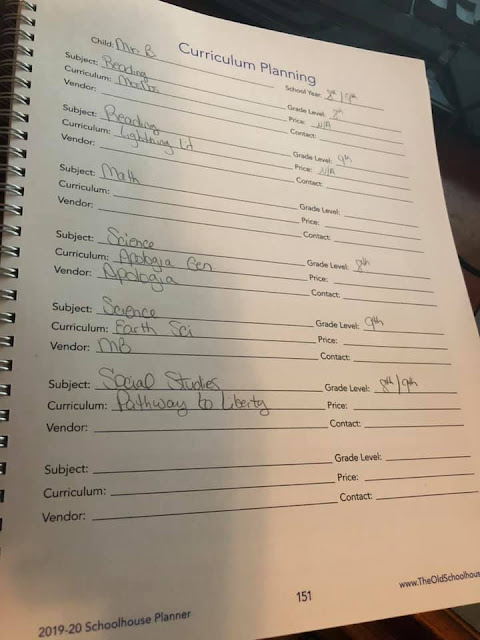 Curriculum Planning
Child: Mr. B
School Year: 8th / 9th
Subject: Reading
Grade Level: 8th
Curriculum:
Price: N/A
Vendor:
Contact:
Subject: Reading
Grade Level: 9th
Curriculum: Lightning Lit
Price: N/A
Vendor:
Contact:
Subject: Math
Grade Level:
Curriculum:
Price:
Vendor:
Contact:
Subject: Science
Grade Level: 8th
Curriculum: Apologia Gen
Price:
Vendor: Apologia
Contact:
Subject: Science
Grade Level: 9th
Curriculum: Earth Sci
Price:
Vendor: MB
Contact:
Subject: Social Studies
Grade Level: 8th / 9th
Curriculum: Pathway to Liberty
Price:
Vendor:
Contact:
Subject:
Grade Level:
Curriculum:
Price:
Vendor:
Contact:
2019-20 Schoolhouse Planner
151
www.TheOldSchoolhous